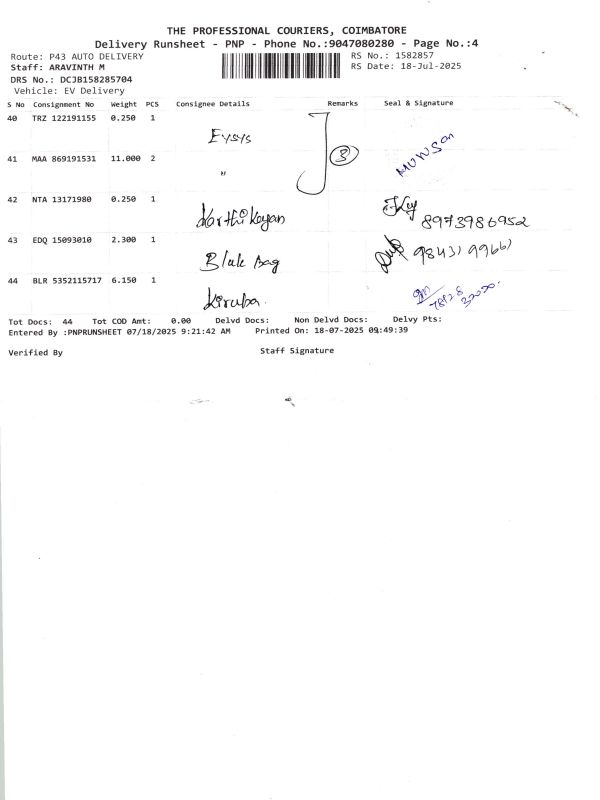 THE PROFESSIONAL COURIERS, COIMBATORE
Delivery Runsheet - PNP - Phone No.:9047080280 - Page No.:4
Route: P43 AUTO DELIVERY RS No.: 1582857
Staff: ARAVINTH M RS Date: 18-Jul-2025
DRS No.: DCJB158285704
Vehicle: EV Delivery
S No Consignment No Weight PCS Consignee Details Remarks Seal & Signature
40 TRZ 122191155 0.250 1 Eysys
41 MAA 869191531 11.000 2 " 3
42 NTA 13171980 0.250 1 Karthikeyan 8973986952
43 EDQ 15093010 2.300 1 Blak Bag
44 BLR 5352115717 6.150 1 Kiruba.
Tot Docs: 44 Tot COD Amt: 0.00 Delvd Docs: Non Delvd Docs: Delvy Pts:
Entered By :PNPRUNSHEET 07/18/2025 9:21:42 AM Printed On: 18-07-2025 09:49:39
Verified By Staff Signature